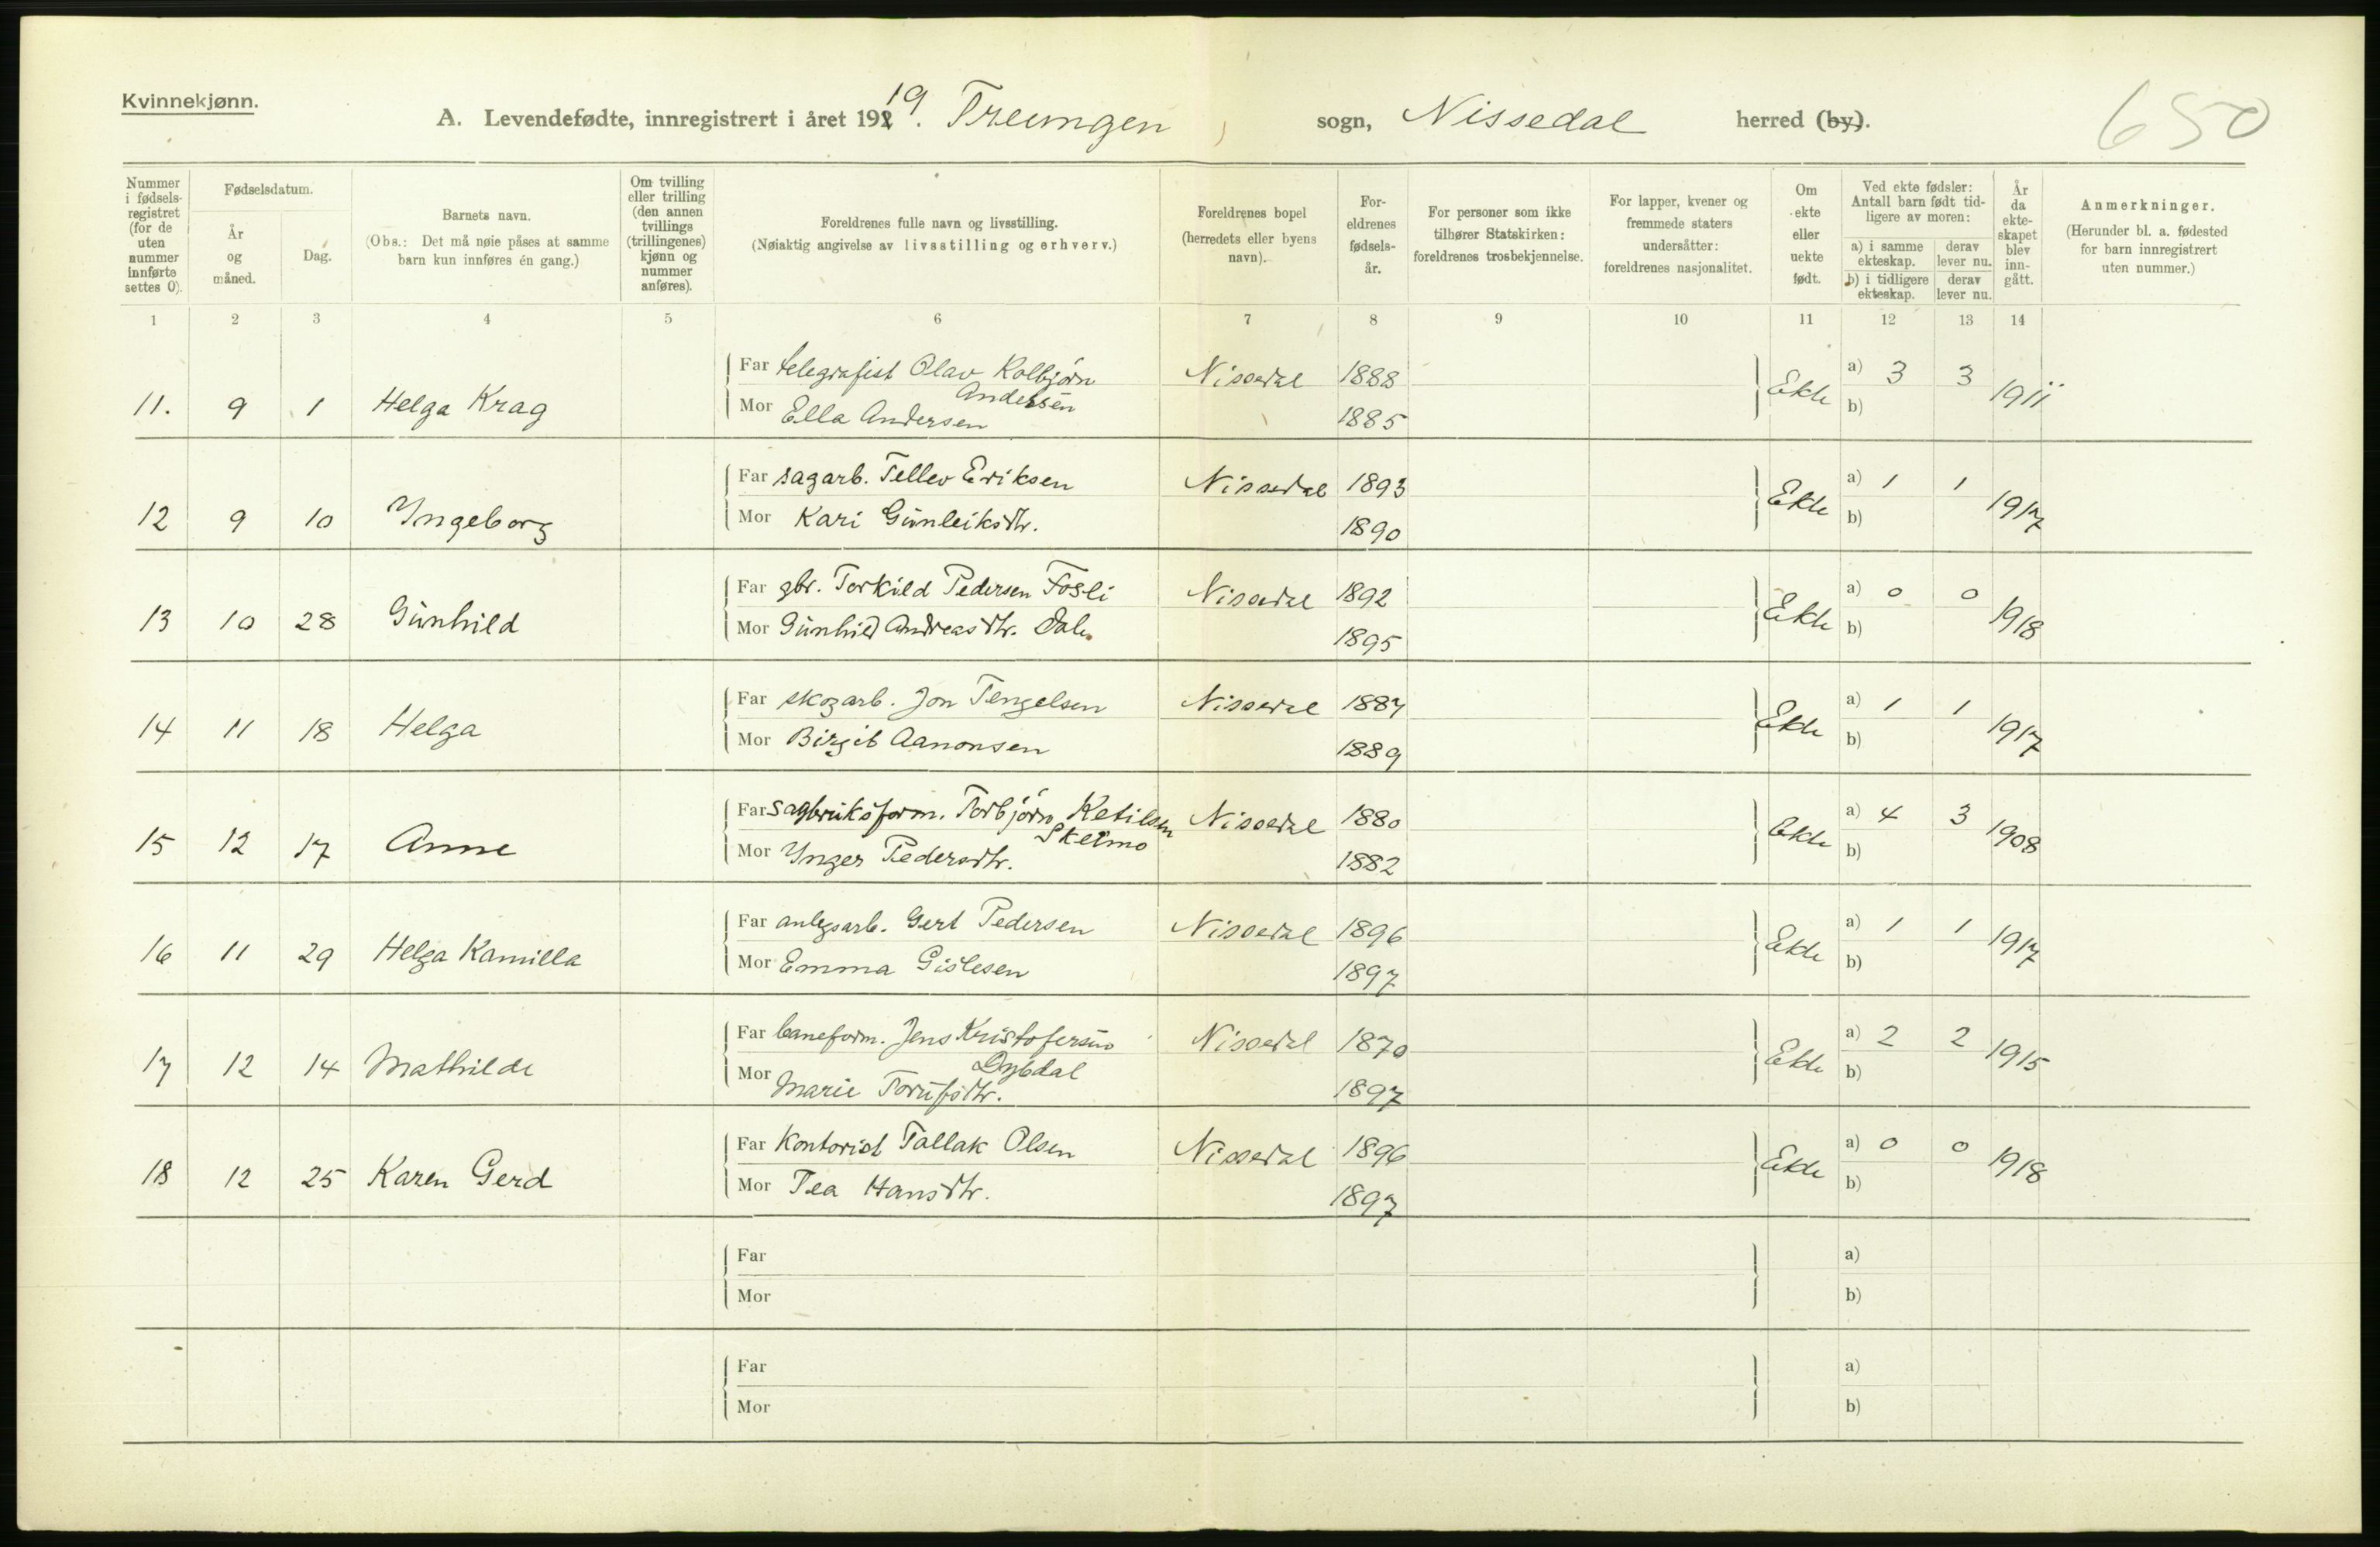 Kvinnekjønn.
A. Levendefødte, innregistrert i året 1919. Treungen sogn, Nissedal herred (by).
650
Nummer i fødselsregistret (for de uten nummer innførte settes 0).
Fødselsdatum.
År og måned.
Dag.
Barnets navn.
(Obs.: Det må nøie påses at samme barn kun innføres én gang.)
Om tvilling eller trilling (den annen tvillings (trillingenes) kjønn og nummer anføres).
Foreldrenes fulle navn og livsstilling.
(Nøiaktig angivelse av livsstilling og erhverv.)
Foreldrenes bopel (herredets eller byens navn).
Foreldrenes fødselsår.
For personer som ikke tilhører Statskirken: foreldrenes trosbekjennelse.
For lapper, kvener og fremmede staters undersåtter: foreldrenes nasjonalitet.
Om ekte eller uekte født.
Ved ekte fødsler: Antall barn født tidligere av moren:
a) i samme ekteskap. derav lever nu.
b) i tidligere ekteskap. derav lever nu.
År da ekteskapet blev inngått.
Anmerkninger.
(Herunder bl. a. fødested for barn innregistrert uten nummer.)
1 2 3 4 5 6 7 8 9 10 11 12 13 14
11. 9 1 Helga Krag Far telegrafist Olav Kolbjørn Andersen Nissedal 1888 Ekte a) 3 3 1911
Mor Ella Andersen 1885 b)
12 9 10 Yngeborg Far sagarb. Tellev Eriksen Nissedal 1893 Ekte a) 1 1 1917
Mor Kari Gunleiksdtr. 1890 b)
13 10 28 Gunhild Far gbr. Torkild Pedersen Fosli Nissedal 1892 Ekte a) 0 0 1918
Mor Gunhild Andreasdtr. Dale 1895 b)
14 11 18 Helga Far skogarb. Jon Tengelsen Nissedal 1887 Ekte a) 1 1 1917
Mor Birgit Aanonsen 1889 b)
15 12 17 Anne Far sagbruksform. Torbjørn Ketilsen Skeimo Nissedal 1880 Ekte a) 4 3 1908
Mor Ynger Pedersdtr. 1882 b)
16 11 29 Helga Kamilla Far anlegsarb. Gert Pedersen Nissedal 1896 Ekte a) 1 1 1917
Mor Emma Gislesen 1897 b)
17 12 14 Mathilde Far baneform. Jens Kristofersen Dybdal Nissedal 1870 Ekte a) 2 2 1915
Mor Marie 1897 b)
18 12 25 Karen Gerd Far Kontorist Tallak Olsen Nissedal 1896 Ekte a) 0 0 1918
Mor Tea Hansdtr. 1897 b)
Far a)
Mor b)
Far a)
Mor b)